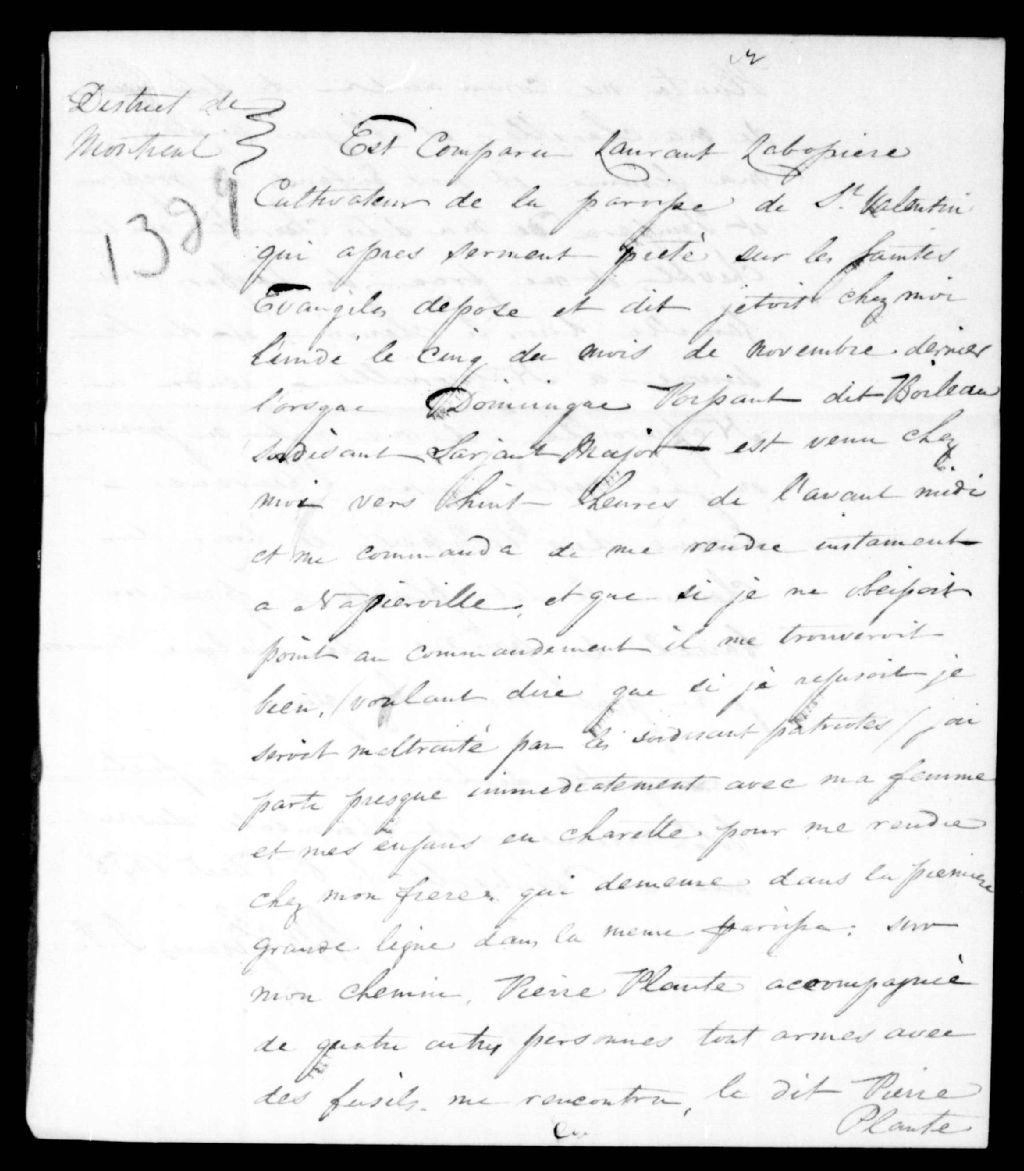 District de
Montreal
1389
Est Comparu Laurant Labossiere
Cultivateur de la paroisse de St. Valentin
qui apres serment preté sur les saintes
Evangiles depose et dit j'etoit chez moi
lundé le cinq du mois de novembre dernier
l'orsque Dominuque Voissant dit Boileau
soidisant Sarjant Major est venu chez
moi vers huit heures de l'avant midi
et me commanda de me rendre instament
a Napierville, et que si je ne obéissoit
point au commandement il me trouveroit
bien, (voulant dire que si je refusoit je
seroit maltraité par les soidisant patriotes) j'ai
parti presque immediatement avec ma femme
et mes enfans en charette pour me rendre
chez mon frere qui demeure dans la premiere
grande ligne dans la meme paroisse: sur
mon chemin, Pierre Plante accompagnié
de quatre autres personnes tout armes avec
des fusils me rencontra, le dit Pierre
Plante